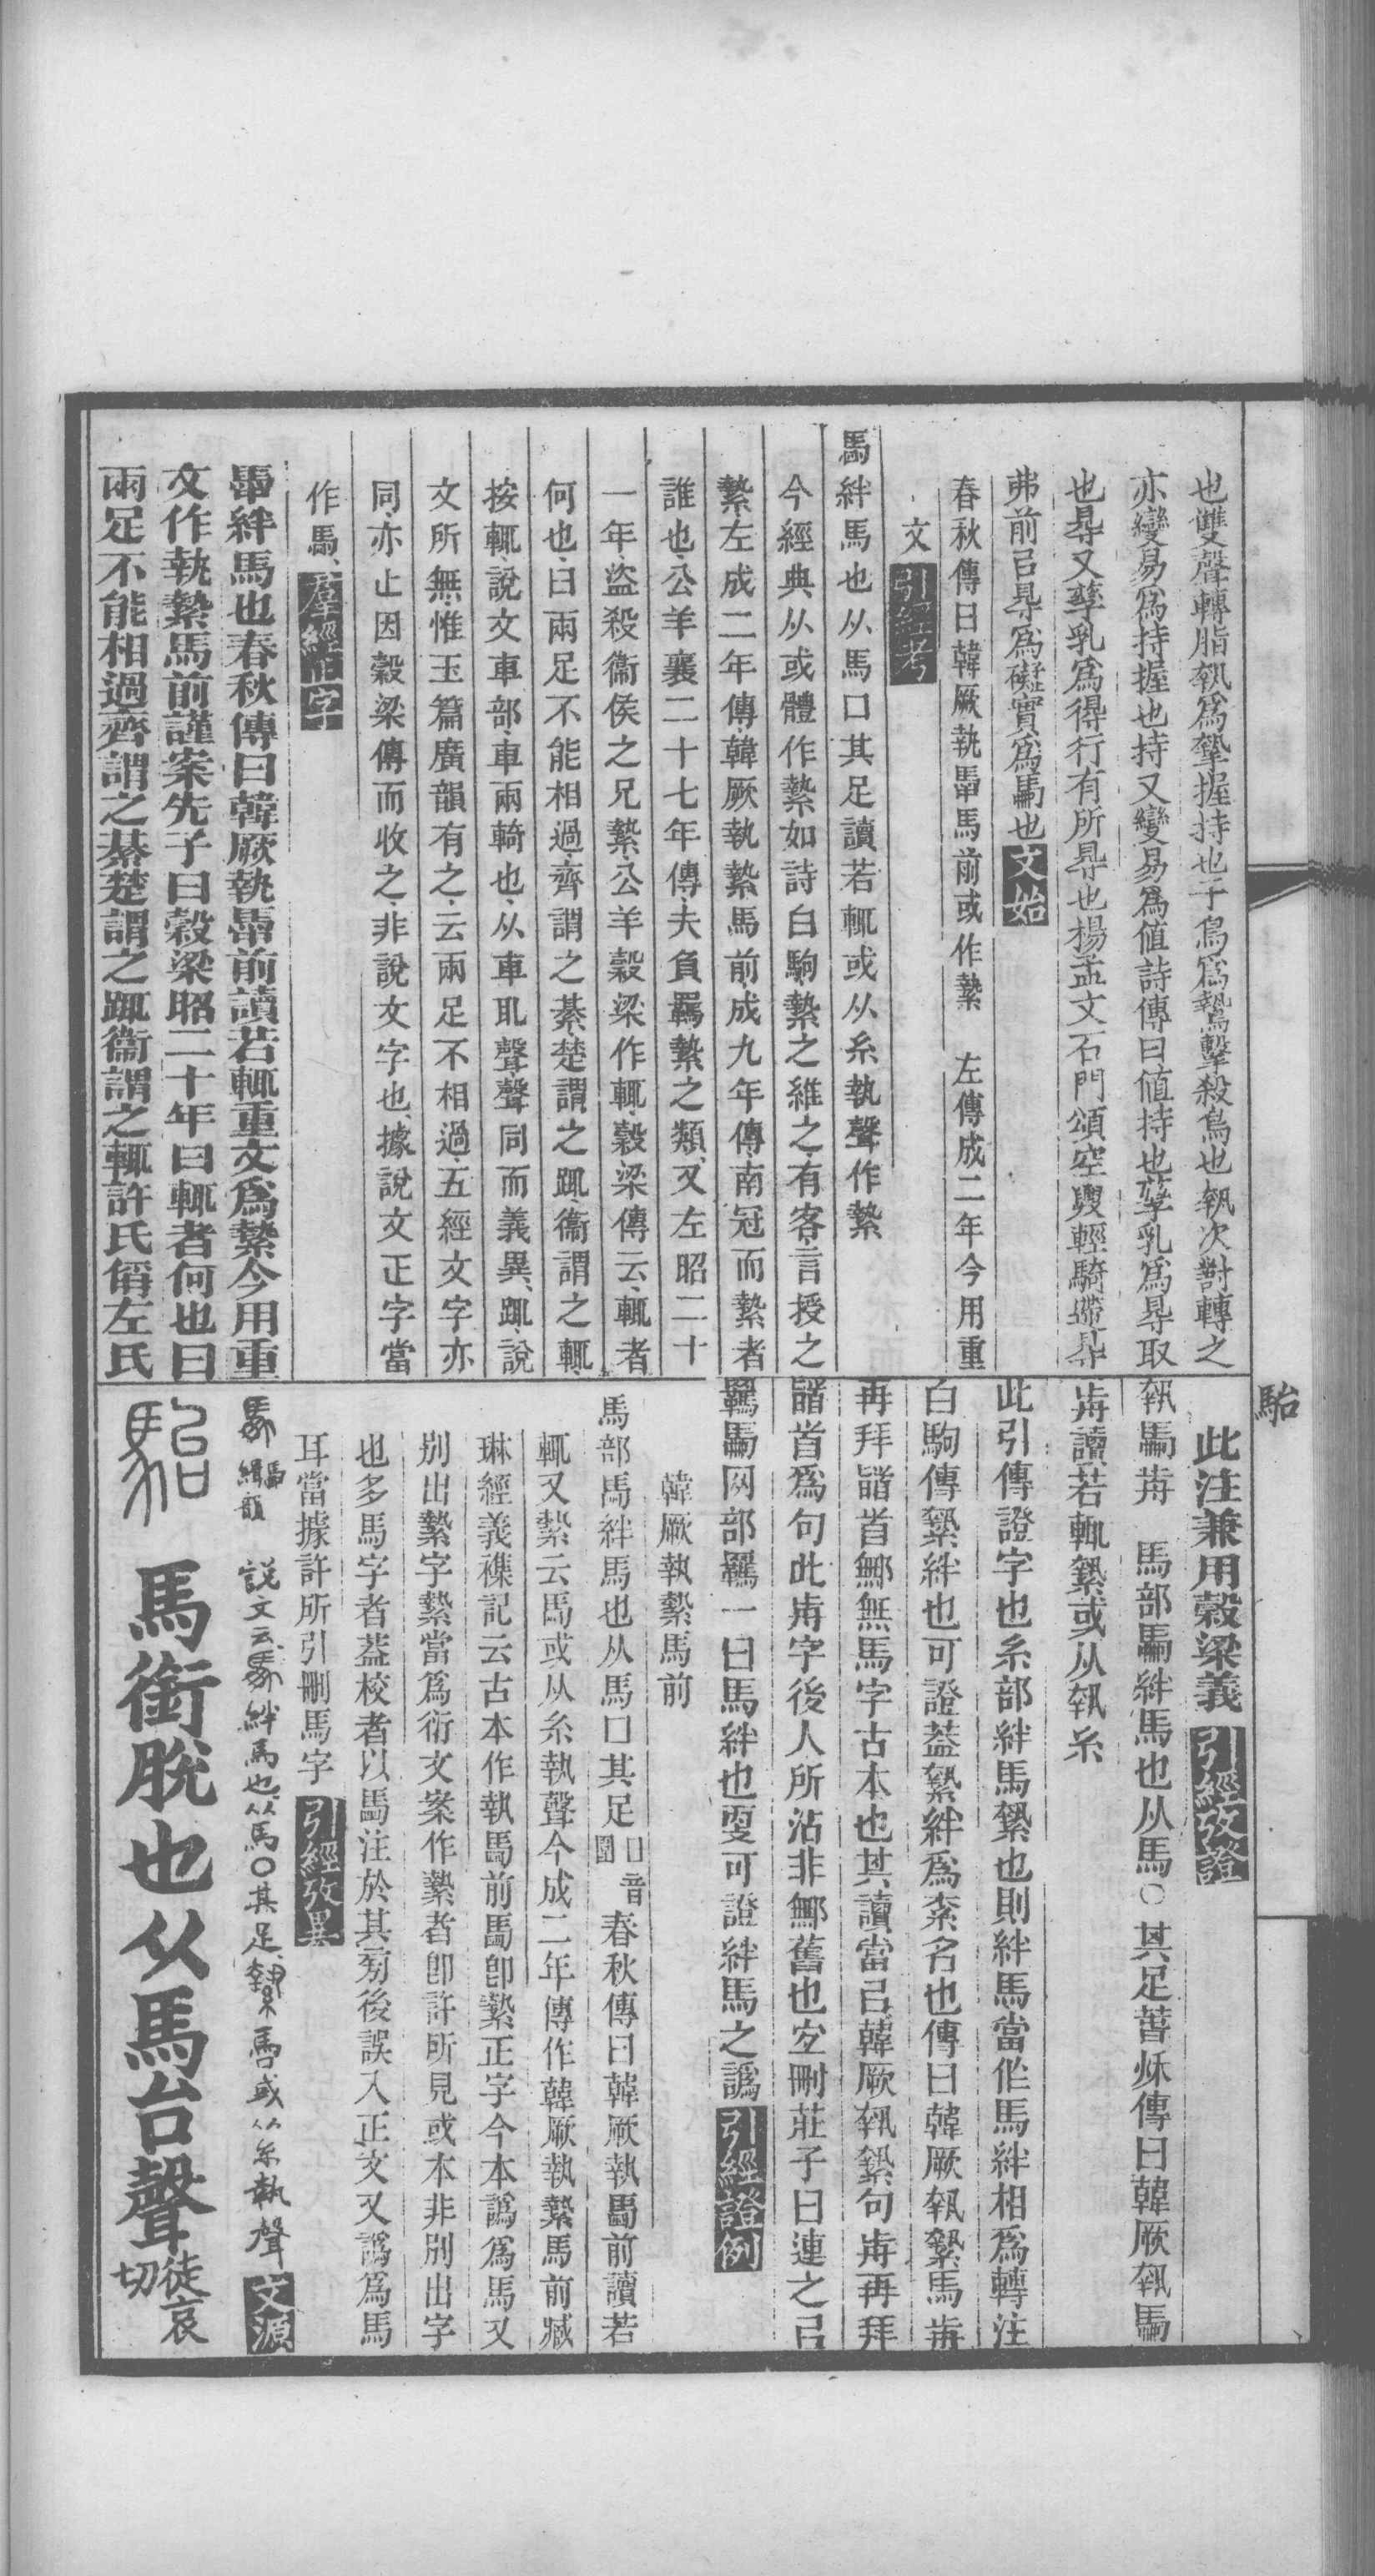 也雙聲轉脂執爲摯握持也于鳥爲鷙擊殺鳥也執次對轉之
亦變易爲持握也持又變易爲値詩傳曰値持也孳乳爲㝵取
也㝵又孳乳爲得行有所㝵也楊孟文石門頌空輿輕騎遰㝵
弗前㠯㝵爲礙實爲馽也文始
春秋傳曰韓厥執馽馬前或作縶　左傳成二年今用重
文引經考
馽絆馬也从馬口其足讀若輒或从糸執聲作縶
今經典从或體作縶如詩白駒縶之維之有客言授之
縶左成二年傳韓厥執縶馬前成九年傳南冠而縶者
誰也公羊襄二十七年傳夫負羈縶之類又左昭二十
一年盜殺衞侯之兄縶公羊穀梁作輒穀梁傳云輒者
何也曰兩足不能相過齊謂之綦楚謂之踂衞謂之輒
按輒說文車部車兩輢也从車耴聲聲同而義異踂說
文所無惟玉篇廣韻有之云兩足不相過五經文字亦
同亦止因穀梁傳而收之非說文字也據說文正字當
作馽羣經正字
馽絆馬也春秋傳曰韓厥執馽前讀若輒重文爲縶今用重
文作執縶馬前謹案先子曰穀梁昭二十年曰輒者何也曰
兩足不能相過齊謂之綦楚謂之踂衞謂之輒許氏偁左氏
駘
此注兼用穀梁義引經攷證
執馽歬　馬部馽絆馬也从馬○其足萅秌傳曰韓厥執馽
歬讀若輒縶或从執糸
此引傳證字也糸部絆馬縶也則絆馬當作馬絆相爲轉注
白駒傳縶絆也可證葢縶絆爲索名也傳曰韓厥執縶馬歬
再拜䭫首鄦無馬字古本也其讀當㠯韓厥執縶句歬再拜
䭫首爲句此歬字後人所沾非鄦舊也宐刪莊子曰連之㠯
羈馽网部羈一曰馬絆也㪅可證絆馬之譌引經證例
韓厥執縶馬前
馬部馽絆馬也从馬口其足口音圍春秋傳曰韓厥執馽前讀若
輒又縶云馽或从糸執聲今成二年傳作韓厥執縶馬前臧
琳經義襍記云古本作執馽前馽卽縶正字今本譌爲馬又
別出縶字縶當爲衍文案作縶者卽許所見或本非別出字
也多馬字者葢校者以馽注於其菊後誤入正文又譌爲馬
耳當據許所引刪馬字引經攷異
說文云馽絆馬也从馬○其足縶馽或从糸執聲文源
駘馬銜脫也从馬台聲徒哀切